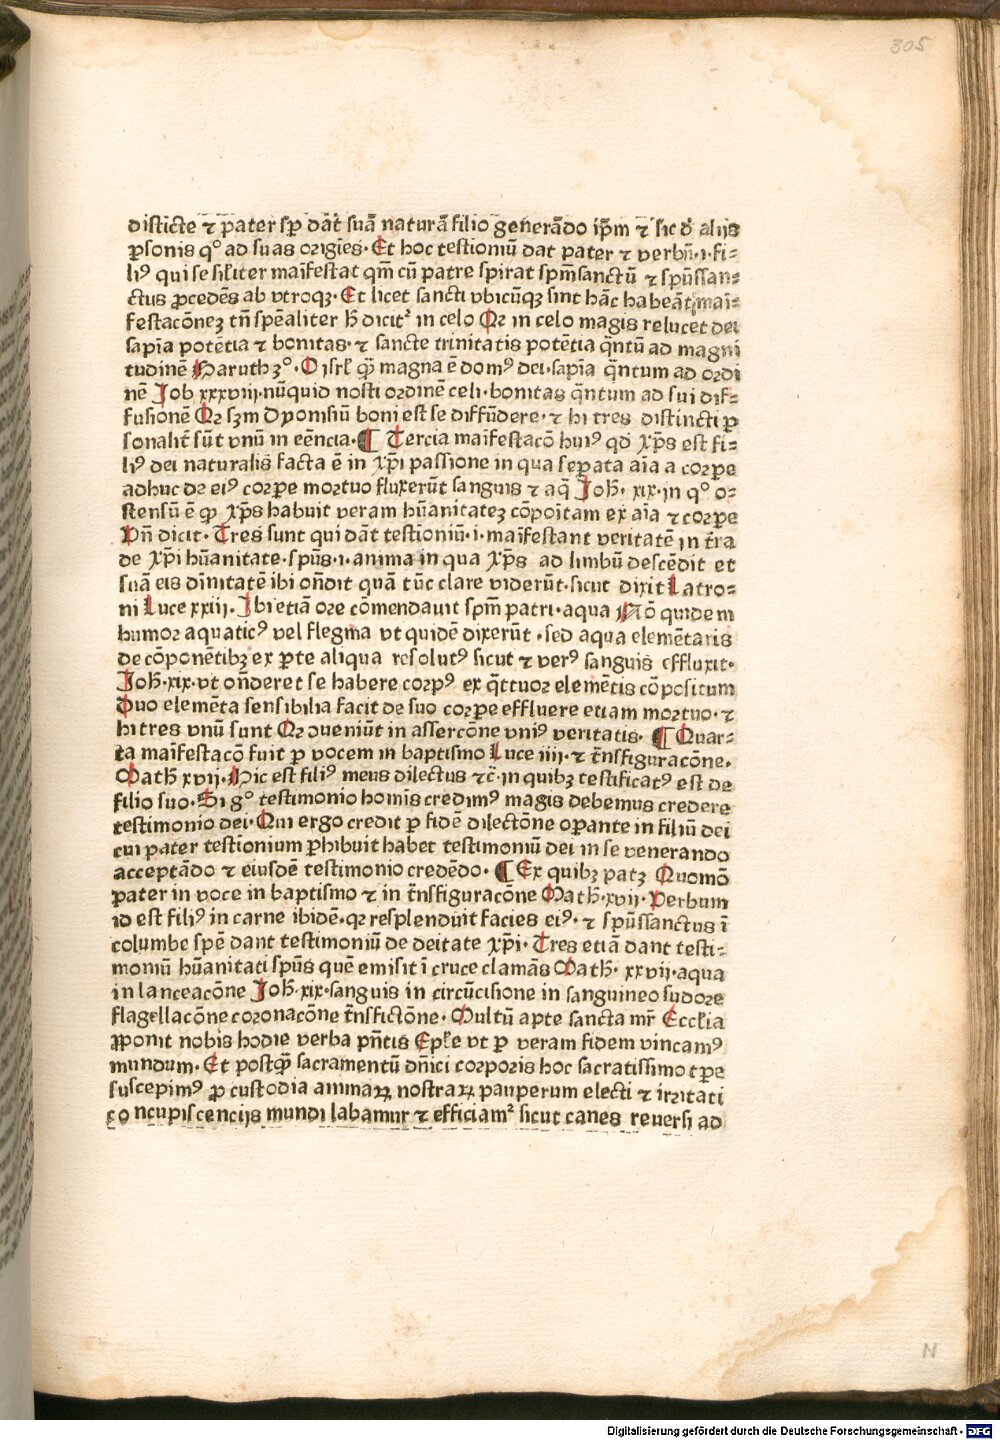 305
disticte ⁊ pater sp̄ dāt suā naturā filio generādo ip̄m ⁊ sic đ alijs
ꝑsonis qº ad suas origīes. Et hoc testioniū dat pater ⁊ verbū.ı.fi⸗
liꝰ qui se sil̄iter maīfestat qm̄ cū patre spirat spm̄sanctū ⁊ spūssan⸗
ctus ꝓcedēs ab vtroqꝫ. Et licet sancti vbicūqꝫ sint hāc habeāt maī⸗
festacōnez tn̄ spēaliter h̄ dicit̄ in celo Qꝛ in celo magis relucet dei
sapīa potētia ⁊ bonitas. ⁊ sancte trinitatis potētia q̄ntū ad magni
tudinē Baruth ʒº. O isrl̄ ꝙ̄ magna ē domꝰ dei.sapīa q̄ntum ad ordi
nē Job xxxviij.nūquid nosti ordinē celi.bonitas q̄ntum ad sui dif⸗
fusionē Qꝛ sꝫm Dyonisiū boni est se diffūdere. ⁊ hi tres distincti ꝑ
sonalit̄ sūt vnū in eēncia. ¶ Tercia maīfestacō huiꝰ qđ xp̄s est fi⸗
liꝰ dei naturalis facta ē in xp̄i passione in qua seꝑata aīa a corꝑe
adhuc de eiꝰ corꝑe mortuo fluxerūt sanguis ⁊ aq̄ Joh̄. xix.in qº o⸗
stensū ē ꝙ xp̄s habuit veram hūanitatez cōpoītam ex aīa ⁊ corꝑe
Vn̄ dicit. Tres sunt qui dāt testioniū.ı.maīfestant veritatē in t̄ra
de xp̄i hūanitate.spūs.ı.anima in qua xp̄s ad limbū descēdit et
suā eis dīnitatē ibi on̄dit quā tūc clare viderūt.sicut dixit Latro⸗
ni Luce xxiij. Ibi etiā ore comendauit spm̄ patri.aqua Nō quidem
humor aquaticꝰ vel flegma vt quidē dixerūt .sed aqua elemētaris
de cōponētibꝫ ex ꝑte aliqua resolutꝰ sicut ⁊ verꝰ sanguis effluxit.
Joh̄.xix.vt on̄deret se habere corpꝰ ex q̄ttuor elemētis cōpositum
Duo elemēta sensibilia facit de suo corꝑe effluere etiam mortuo. ⁊
hi tres vnū sunt Qꝛ ꝯueniūt in assercōne vniꝰ veritatis. ¶ Quar⸗
ta maīfestacō fuit ꝑ vocem in baptismo Luce iiij. ⁊ t̄nsfiguracōne.
Math̄ xvij. Hic est filiꝰ meus dilectus ⁊c̄.in quibꝫ testificatꝰ est de
filio suo. Si gº testimonio homīs credimꝰ magis debemus credere
testimonio dei. Qui ergo credit ꝑ fidē dilectōne oꝑante in filiū dei
cui pater testīonium ꝑhibuit habet testimoniū dei in se venerando
acceptādo ⁊ eiusdē testimonio credēdo. ¶ Ex quibꝫ patꝫ Quomō
pater in voce in baptismo ⁊ in t̄nsfiguracōne Math̄.xvij. Verbum
id est filiꝰ in carne ibidē.qꝛ resplenduit facies eiꝰ. ⁊ spūssanctus ī
columbe spē dant testimoniū de deitate xp̄i. Tres etiā dant testi⸗
moniū hūanitati spūs quē emisit ī cruce clamās Math̄. xxvij.aqua
in lanceacōne Joh̄.xix.sanguis in circūcisione in sanguineo sudore
flagellacōne coronacōne t̄nsfictōne. Multū apte sancta mr̄ Eccl̄ia
ꝓponit nobis hodie verba pn̄tis Epl̄e vt ꝑ veram fidem vincamꝰ
mundum. Et postꝙ̄ sacramentū dn̄ici corporis hoc sacratissimo tꝑe
suscepimꝰ ꝓ custodia animaꝝ nostraꝝ pauperum electi ⁊ irritati
concupiscencijs mundi labamur ⁊ efficiam̄ sicut canes reuersi ad
N
Digitalisierung gefördert durch die Deutsche Forschungsgemeinschaft - DFG